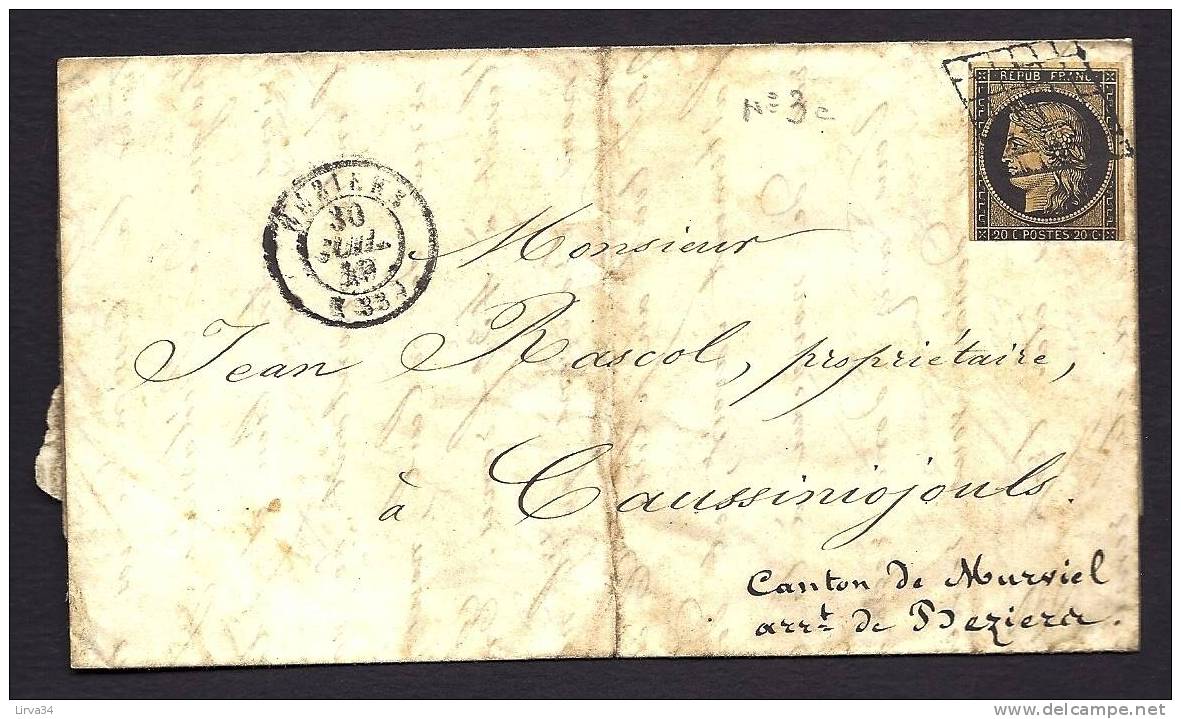 N° 3c
REPUB FRANC
20 C POSTES 20 C
BEZIERS
30
JUIL.
49
Monsieur
Jean Rascol, propriétaire,
à Caussiniojouls.
Canton de Murviel
arrt de Beziers.
Lirva34
www.delcampe.net